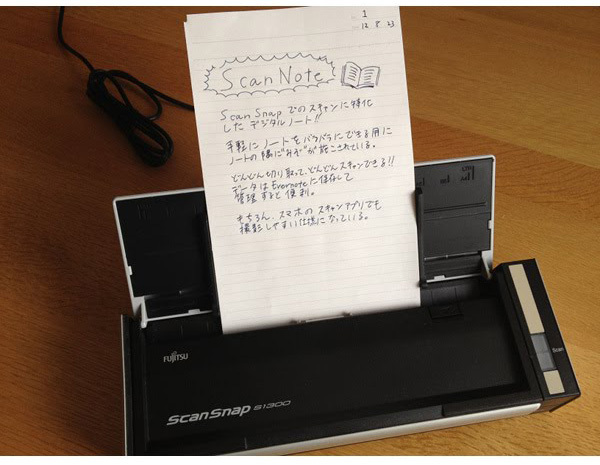 1
12. 8. 23
ScanNote
ScanSnapでのスキャンに特化
したデジタルノート!!
手軽にノートをバラバラにできる用に
ノートの隅にみぞが施こされている。
どんどん切り取って、どんどんスキャンできる!!
データはEvernoteに保存して
管理すると便利。
もちろん、スマホのスキャンアプリでも
撮影しやすい仕様になっている。
FUJITSU
ScanSnap S1300
Scan